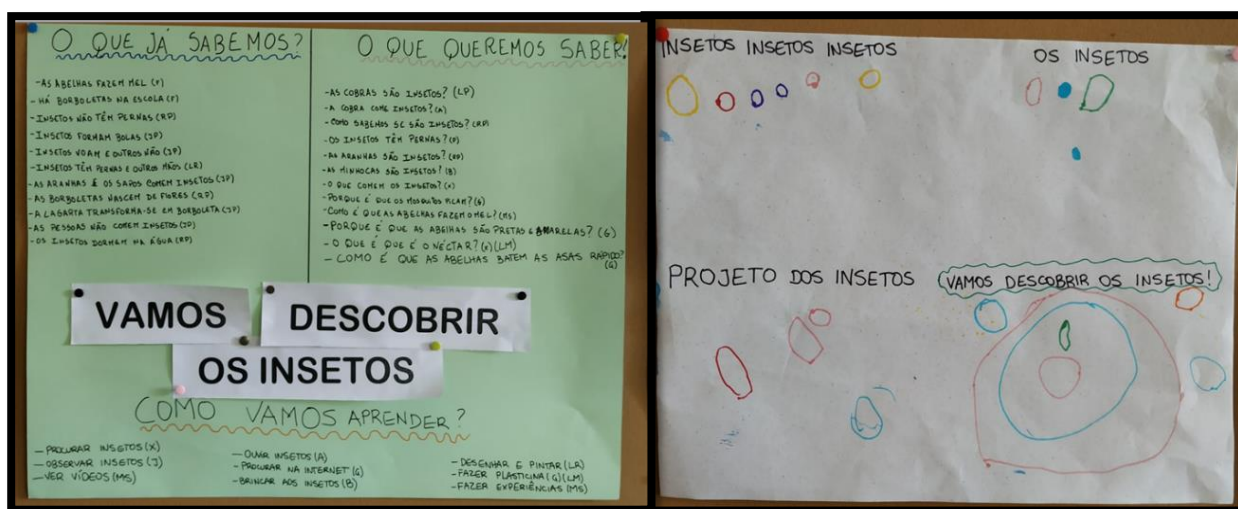 O QUE JÁ SABEMOS?
- AS ABELHAS FAZEM MEL (F)
- HÁ BORBOLETAS NA ESCOLA (F)
- INSETOS NÃO TÊM PERNAS (RP)
- INSETOS FORMAM BOLAS (JP)
- INSETOS VOAM E OUTROS NÃO (JP)
- INSETOS TÊM PERNAS E OUTROS MÃOS (LR)
- AS ARANHAS E OS SAPOS COMEM INSETOS (JP)
- AS BORBOLETAS NASCEM DE FLORES (RP)
- A LAGARTA TRANSFORMA-SE EM BORBOLETA (JP)
- AS PESSOAS NÃO COMEM INSETOS (JP)
- OS INSETOS DORMEM NA ÁGUA (RP)
O QUE QUEREMOS SABER!
- AS COBRAS SÃO INSETOS? (LP)
- A COBRA COME INSETOS? (A)
- COMO SABEMOS SE SÃO INSETOS? (RP)
- OS INSETOS TÊM PERNAS?
- AS ARANHAS SÃO INSETOS?
- AS MINHOCAS SÃO INSETOS? (B)
- O QUE COMEM OS INSETOS?
- PORQUE É QUE OS MOSQUITOS PICAM? (G)
- COMO É QUE AS ABELHAS FAZEM O MEL? (MS)
- PORQUE É QUE AS ABELHAS SÃO PRETAS E AMARELAS? (G)
- O QUE É QUE É O NÉCTAR? (X) (LM)
- COMO É QUE AS ABELHAS BATEM AS ASAS RÁPIDO? (G)
VAMOS DESCOBRIR
OS INSETOS
COMO VAMOS APRENDER?
- PROCURAR INSETOS (X)
- OBSERVAR INSETOS (J)
- VER VÍDEOS (MS)
- OUVIR INSETOS (A)
- PROCURAR NA INTERNET (G)
- BRINCAR AOS INSETOS (B)
- DESENHAR E PINTAR (LR)
- FAZER PLASTICINA (G) (LM)
- FAZER EXPERIÊNCIAS (MS)
INSETOS INSETOS INSETOS
OS INSETOS
PROJETO DOS INSETOS
VAMOS DESCOBRIR OS INSETOS!